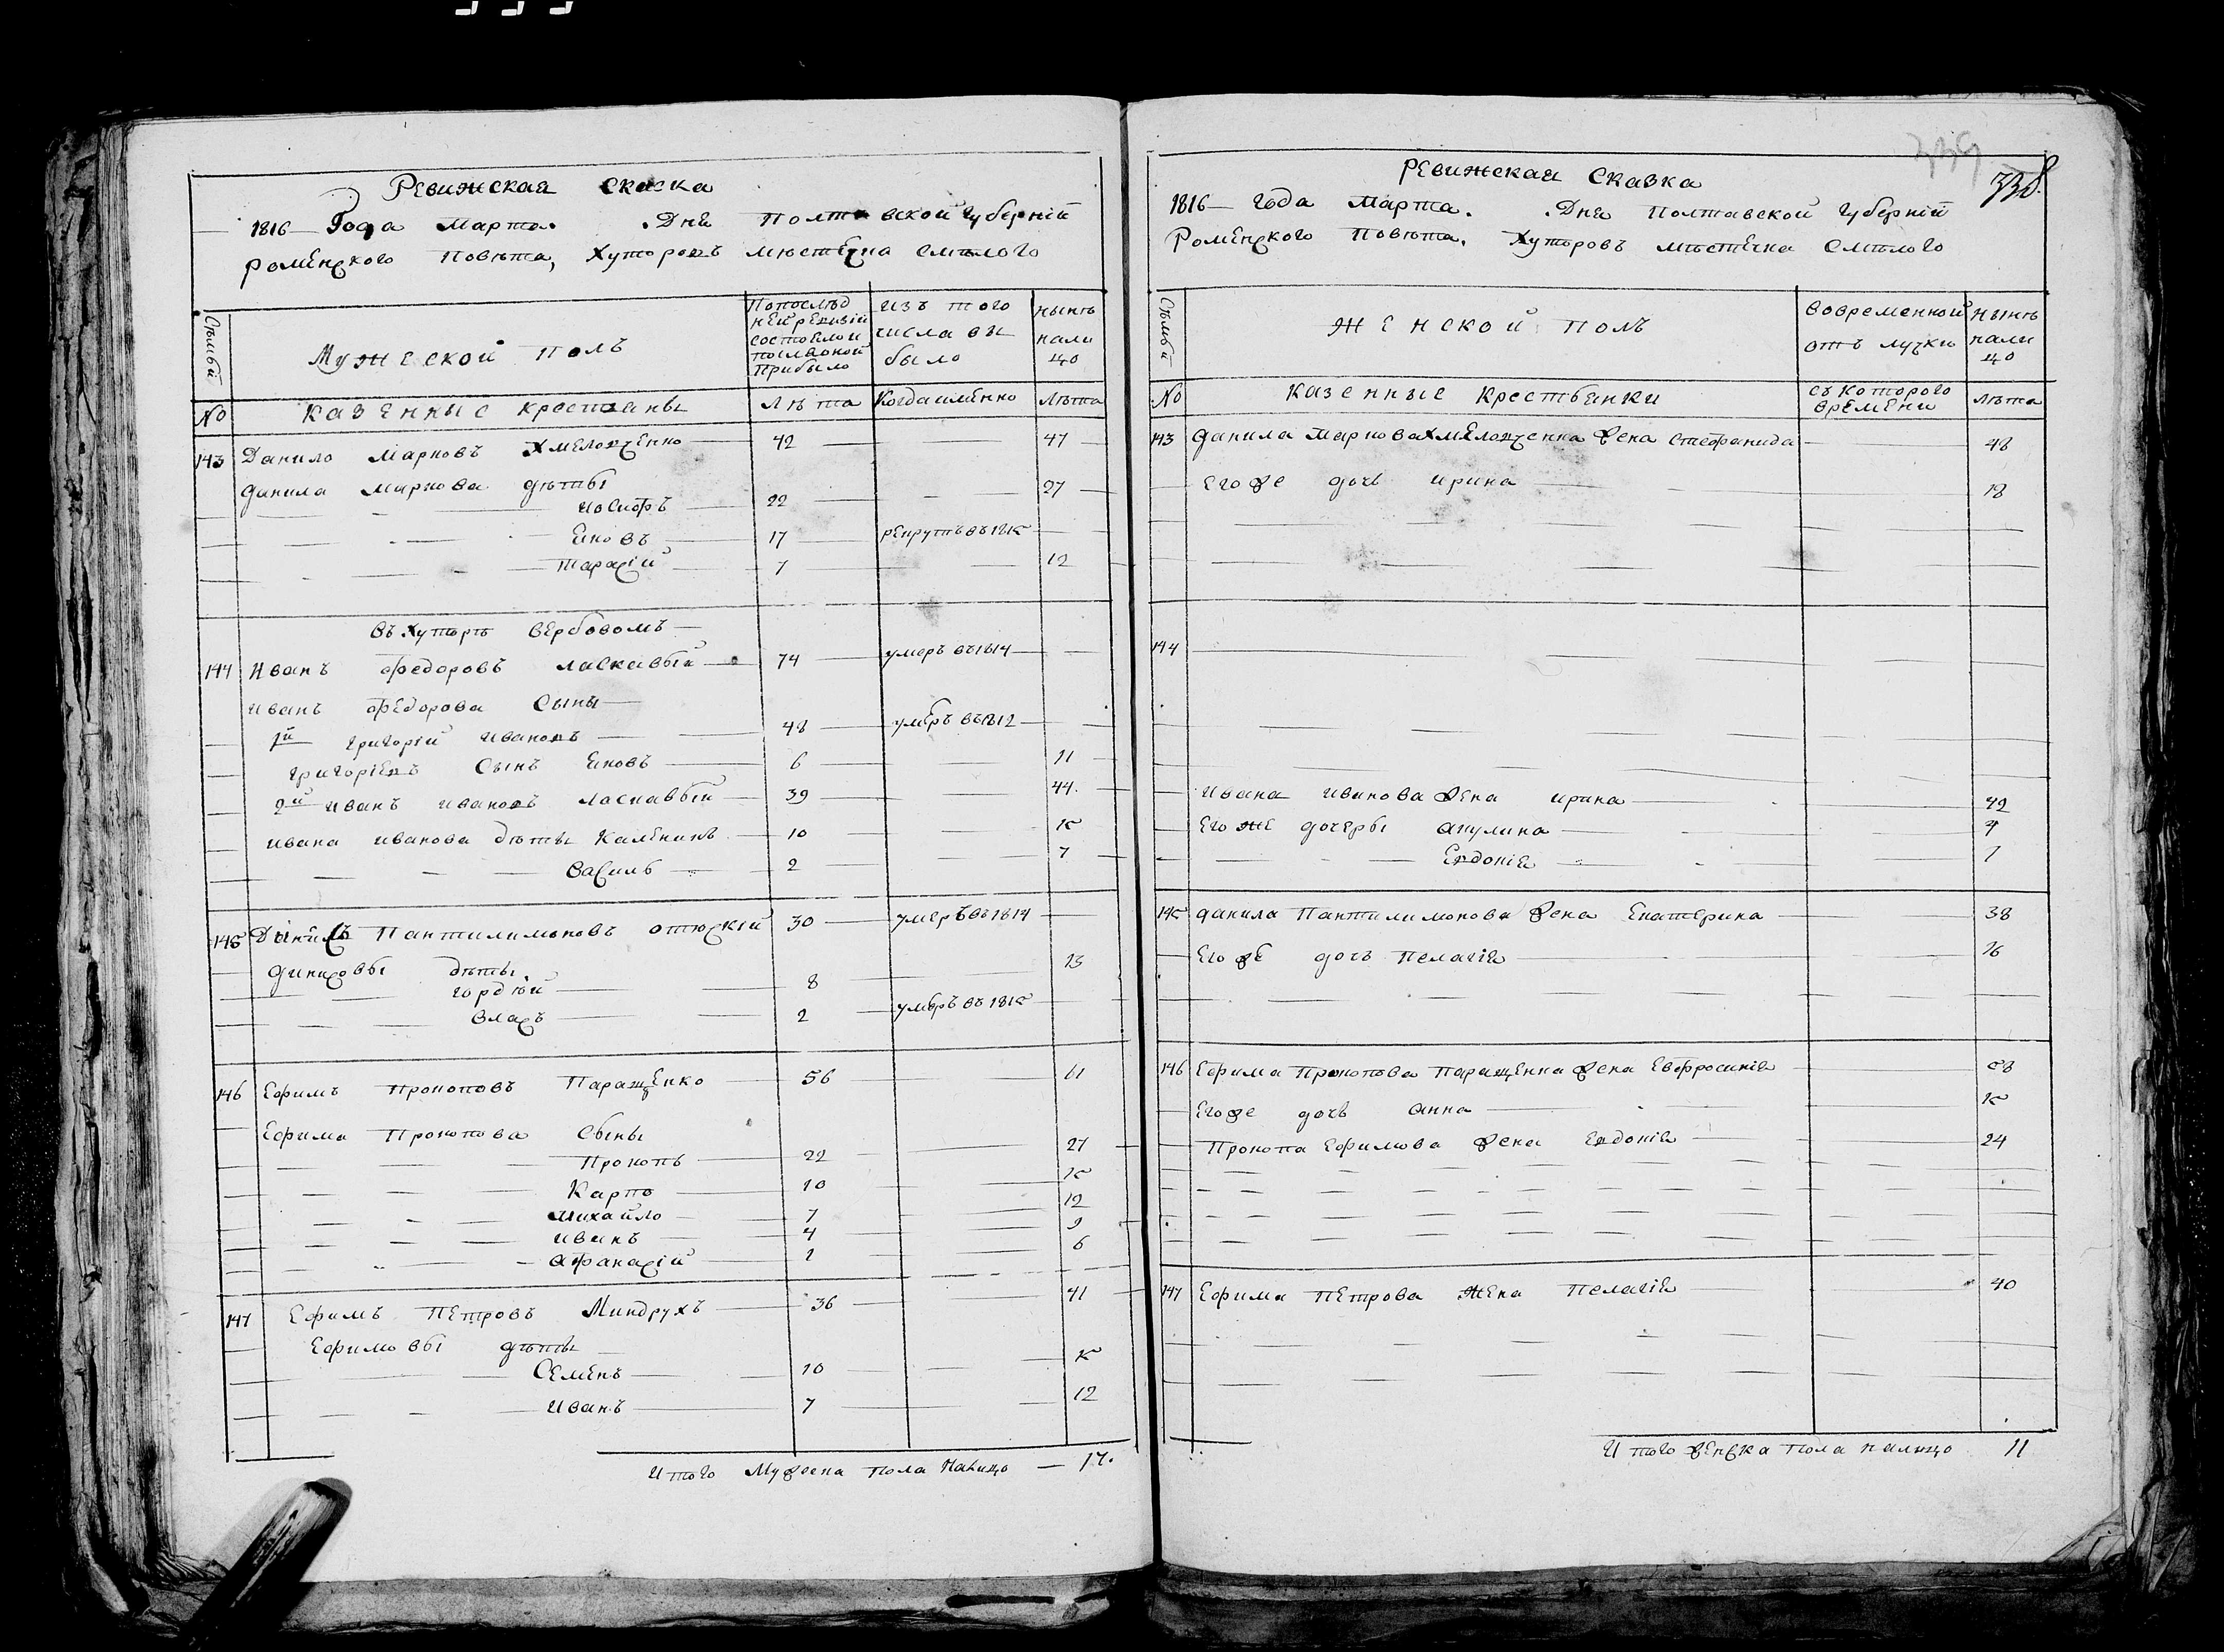 Ревижская сказка
1816 Года Марта. Дня Полтавской губерній
Роменского Повѣта, Хуторовъ мѣстечка Смѣлого
Сѣмьи
Мужеской полъ
По последней ревизіи состояло и по
прибыло
изъ того числа выбыло
нынѣ налицо
№ Казенные крестяны Лѣта Когда именно Лѣта
143 Данило Марковъ Хмелювченко 42 47
Данила Маркова дѣты
Иосифъ 22 27
Яковъ 17 рекрутъ въ 1815
Тарасій 7 12
въ хуторѣ Вербовомъ
144 Иванъ Федоровъ Ласкавый 74 умеръ въ 1814
Иванъ Федорова Сыны
1й григорій Ивановъ 48 умеръ въ 1812
григоріевъ Сынъ Яковъ 6 11
2й Иванъ Ивановъ Ласкавый 39 44
Ивана Иванова дѣты Каленикъ 10 15
Василь 2 7
145 Данило Пантилимоновъ 30 умеръ въ 1814
даниловы дѣты
гордѣй 8 13
Власъ 2 умеръ въ 1815
146 Ефимъ Прокоповъ Паращенко 56 61
Ефима Прокопова Сыны
Прокопъ 22 27
Карпо 10 15
Михайло 7 12
Иванъ 4 9
Афанасій 1 6
147 Ефимъ Петровъ Миндрухъ 36 41
Ефимовы дѣты
Семенъ 10 15
Иванъ 7 12
Итого Мужеска пола налицо — 17.
339
338
Ревижская Сказка
1816 года Марта. Дня Полтавской губерній
Роменского Повѣта, Хуторовъ мѣстечка Смѣлого
Сѣмьи
Женской полъ
вовременной отъ лучки
нынѣ налицо
№ Казенные Крестьянки съ которого времени Лѣта
143 Данила Маркова Хмелювченка жена Стефанида 48
Его же дочь Ирина 18
144
Ивана Иванова жена Ирина 42
Его же дочеры Акулина 9
Евдокія 7
145 Данила Пантилимонова жена Екатерина 38
Его же дочь Пелагія 16
146 Ефима Прокопова Паращенка жена Евфросинія 58
Его же дочь Анна 15
Прокопа Ефимова жена Евдокія 24
147 Ефима Петрова жена Пелагія 40
Итого женска пола налицо 11